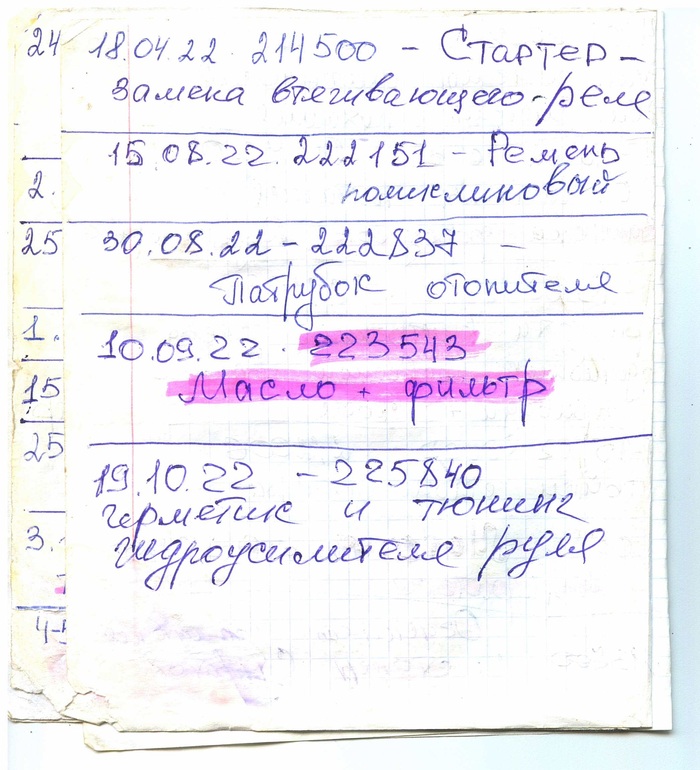 24
2.
25
1.
15
25
3.
18.04.22. 214500 - Стартер -
замена втягивающего-реле
15.08.22. 222151 - Ремень
поликлиновый
30.08.22 - 222837 -
Патрубок отопителя
10.09.22. 223543
Масло + фильтр
19.10.22 - 225840
герметик и тюнинг
гидроусилителя руля